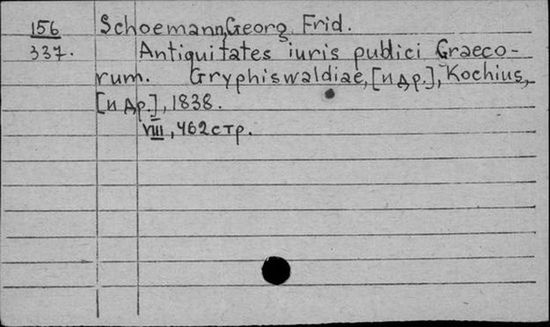 156 Schoemann, Georg Frid.
337. Antiquitates iuris publici Graeco-
rum. Gryphiswaldiae, [и др.], Kochius,
[и др.], 1838.
VIII, 462 стр.